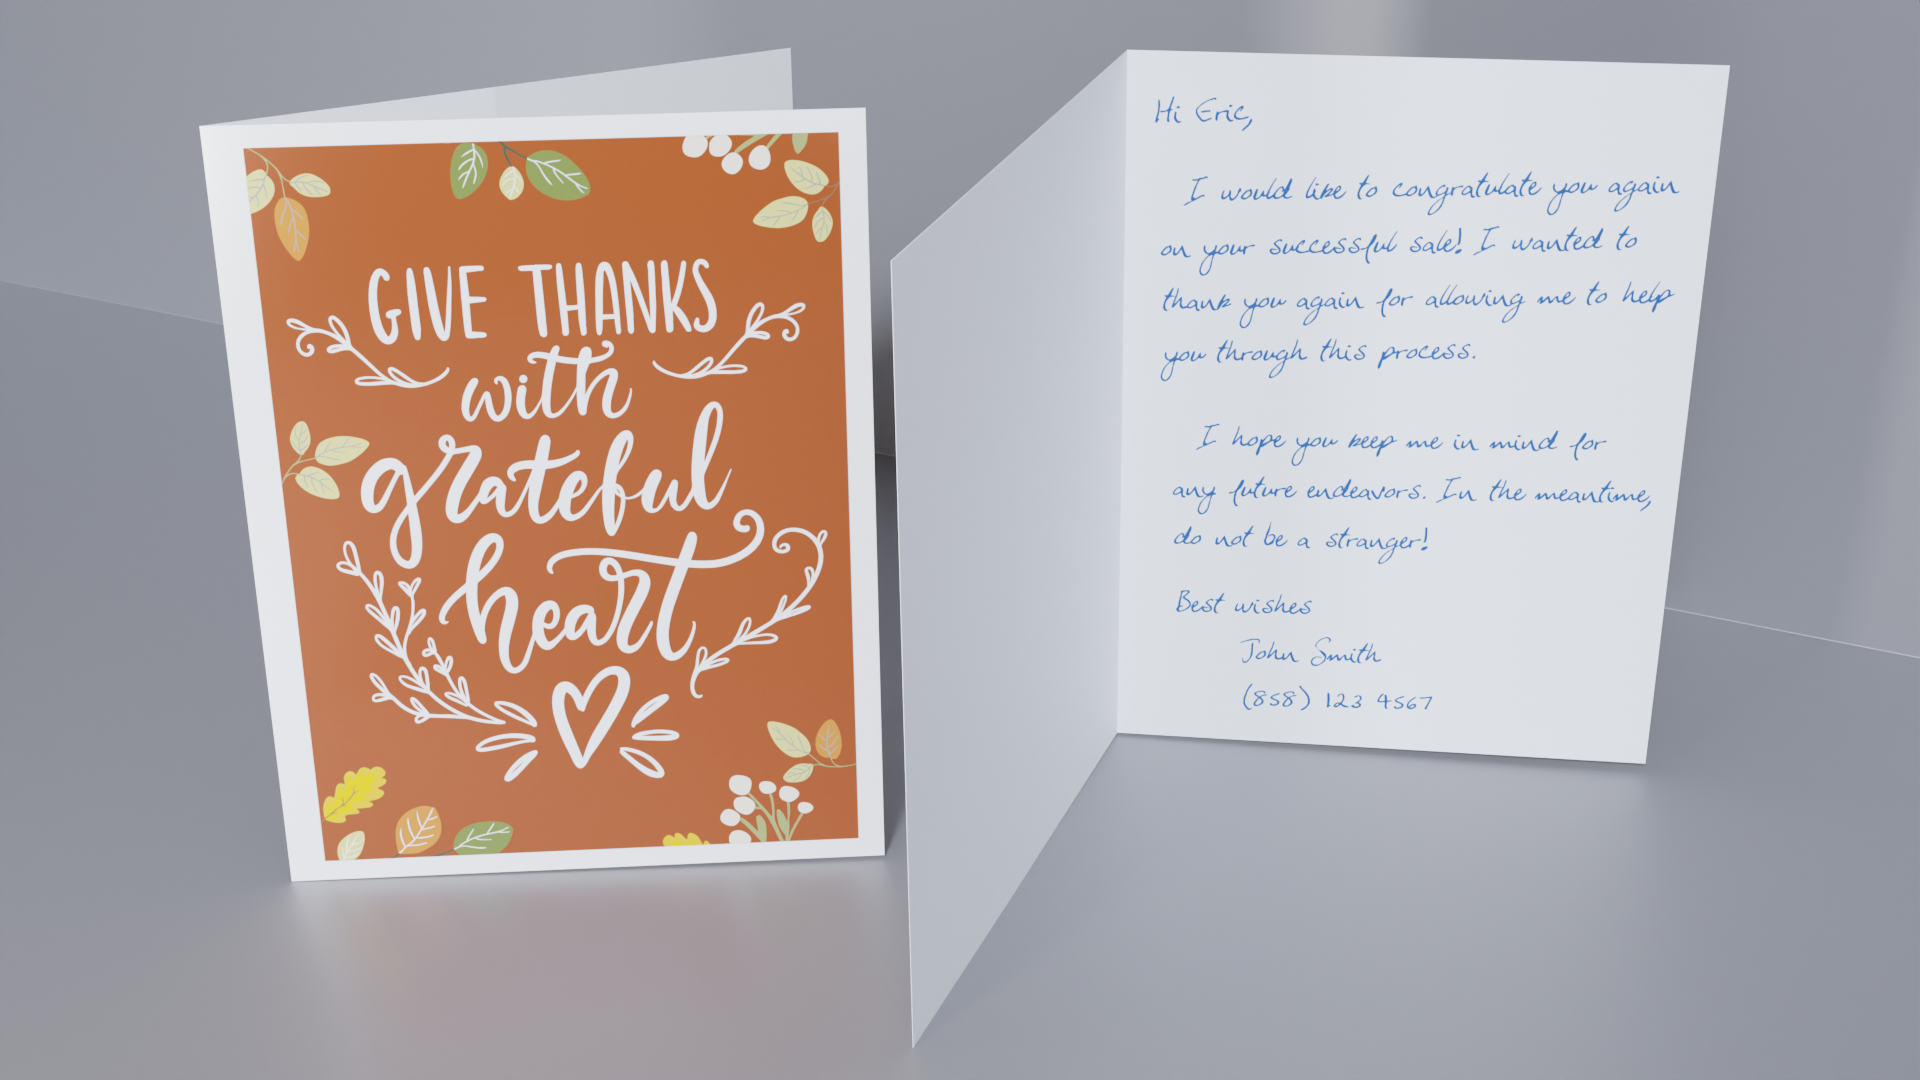 GIVE THANKS
with
grateful
heart
Hi Eric,
I would like to congratulate you again
on your successful sale! I wanted to
thank you again for allowing me to help
you through this process.
I hope you keep me in mind for
any future endeavors. In the meantime,
do not be a stranger!
Best wishes
John Smith
(858) 123 4567